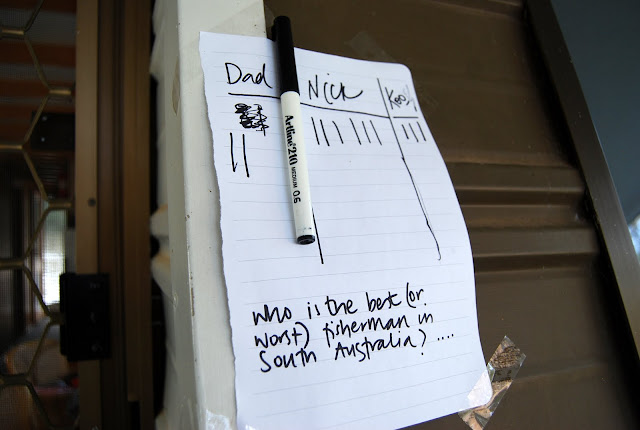 Dad Nick
Artline 210 MEDIUM 0.6
who is the best (or
worst) fisherman in
South Australia? ....